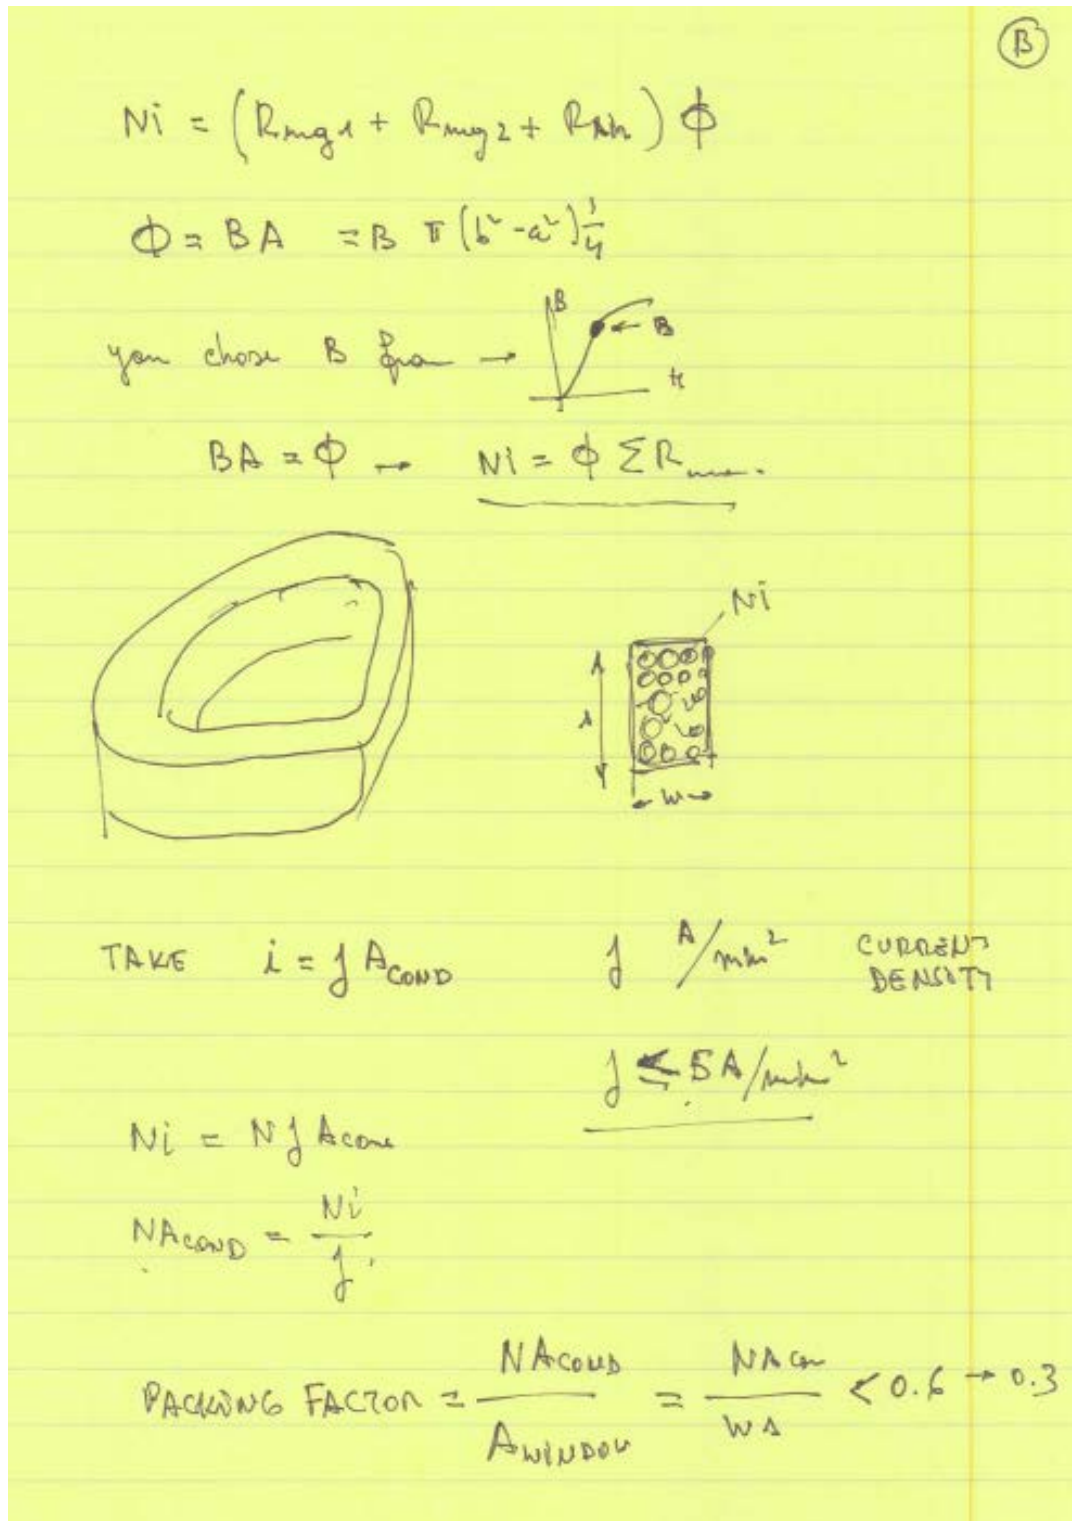 B
Ni = (Rmg1 + Rmg2 + R ) ϕ
ϕ = BA = B π (b² - a²) 1/4
you chose B from →
B
← B
H
BA = ϕ → Ni = ϕ Σ R
Ni
s
← w →
TAKE i = j A COND j A/mm² CURRENT
DENSITY
j ≤ 5 A/mm²
Ni = N j A cond
N A COND = Ni / j
PACKING FACTOR = N A COND / A WINDOW = N A con / w s < 0.6 → 0.3